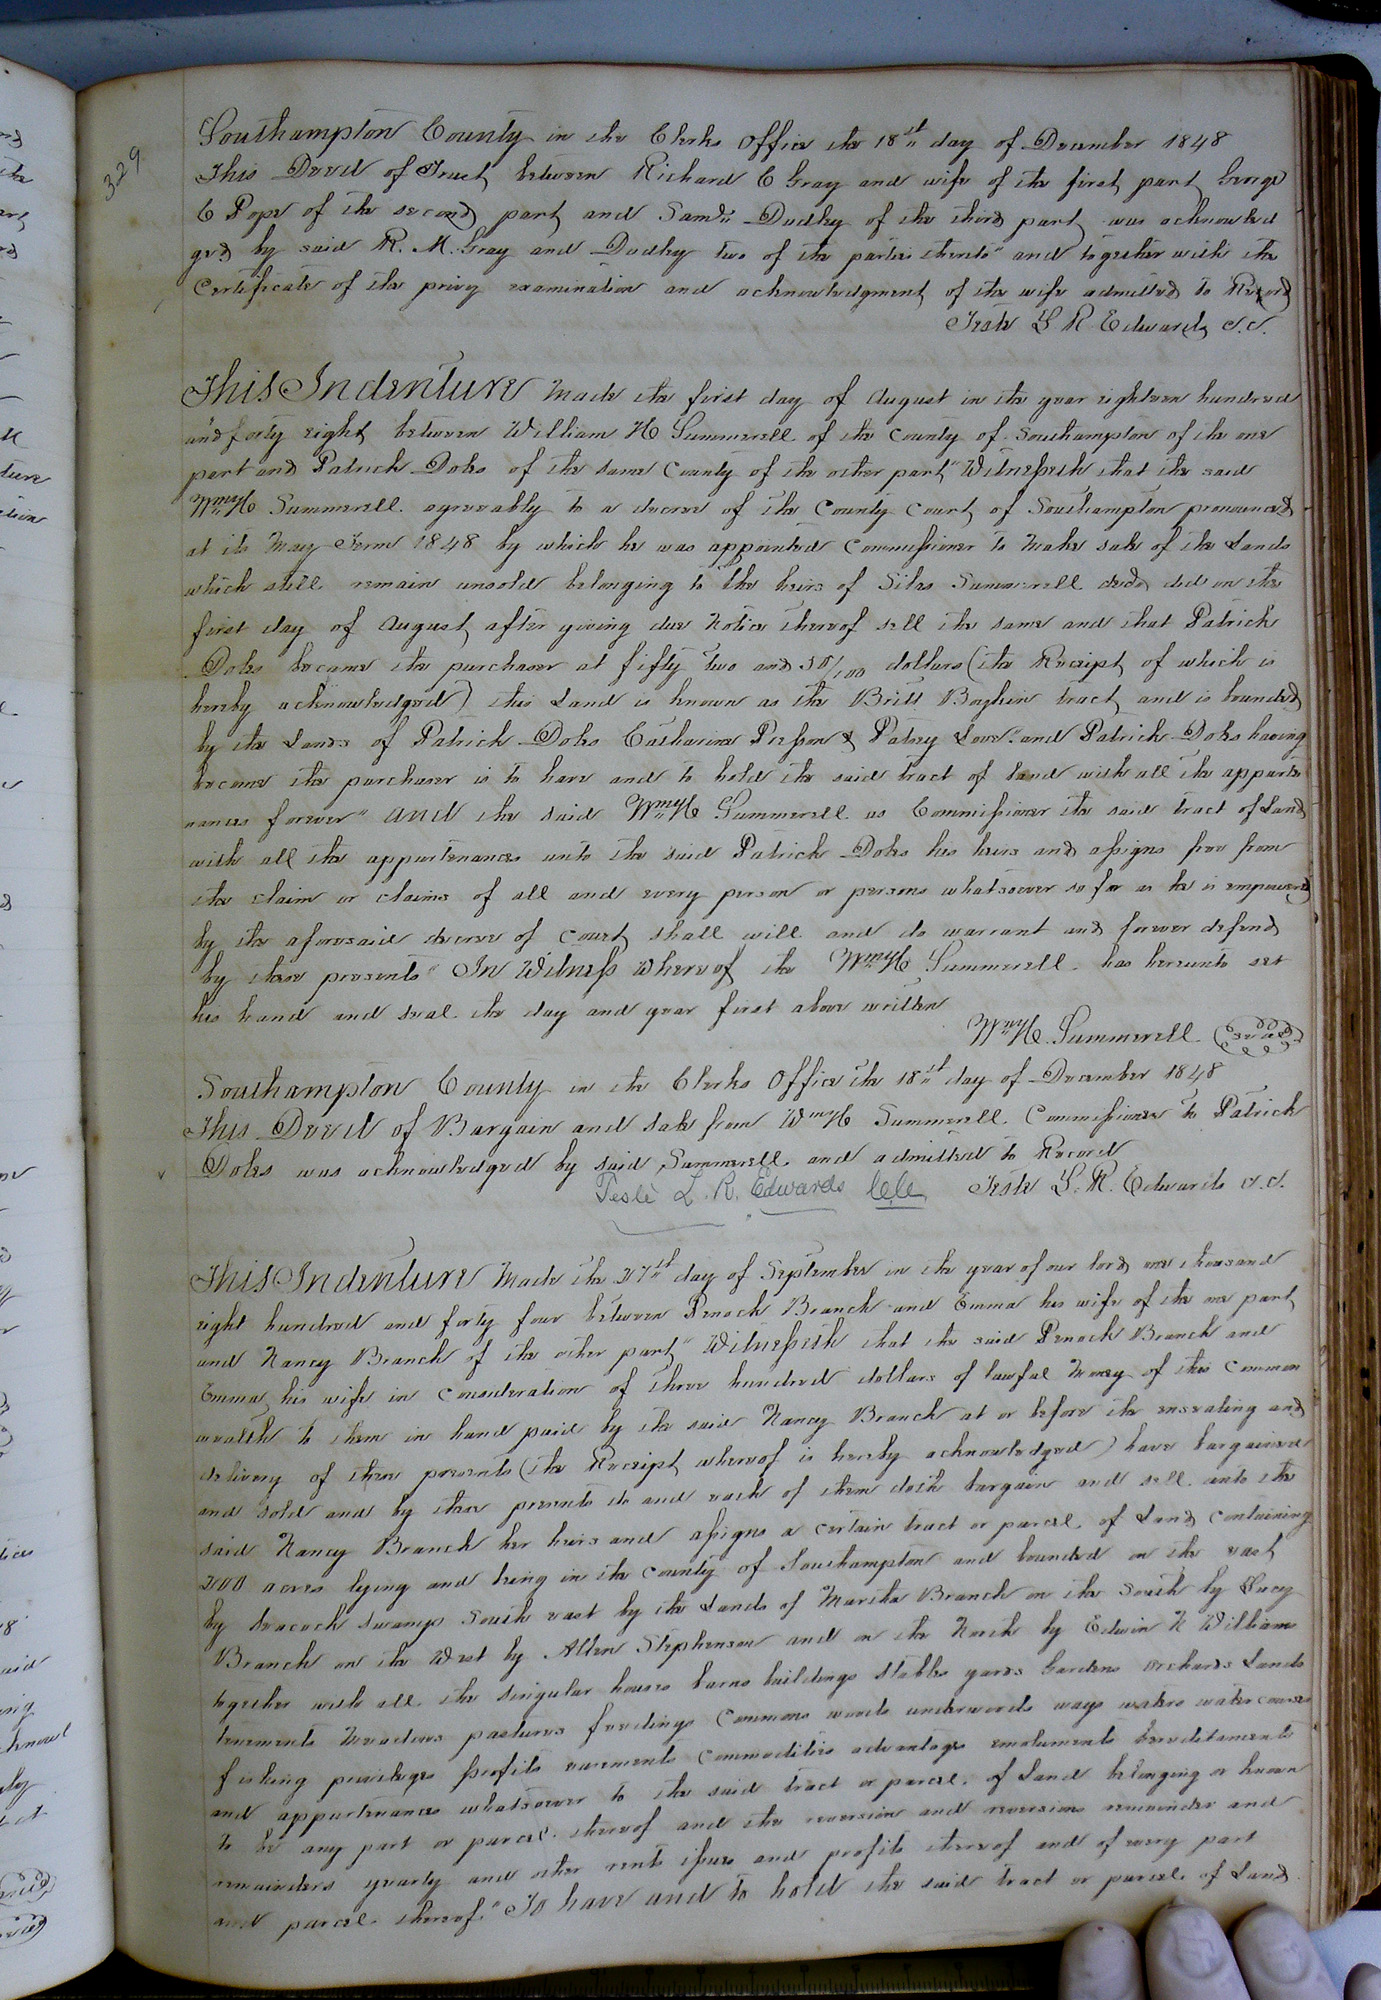 329
Southampton County in the Clerks Office the 18th day of December 1848
This Deed of Trust between Richard C Gray and wife of the first part George
C Pope of the second part and Saml Dudley of the third part was acknowled
ged by said R. M. Gray and Dudley two of the parties thereto" and together with the
Certificate of the privy examination and acknowledgment of the wife admitted to Record
Teste L R Edwards c.c.
This Indenture Made the first day of August in the year eighteen hundred
and forty eight between William H Summerell of the County of Southampton of the one
part and Patrick Doles of the same County of the other part" Witnesseth that the said
Wm H Summerell agreeably to a decree of the County Court of Southampton pronounced
at its May Term 1848 by which he was appointed Commissioner to make sale of the Lands
which still remain unsold belonging to the heirs of Silas Summerell decd did on the
first day of August after giving due Notice thereof sell the same and that Patrick
Doles became the purchaser at fifty two and 50/100 dollars (the Receipt of which is
hereby acknowledged) this Land is known as the Britt tract and is bounded
by the Lands of Patrick Doles Catharine Persson & Patsy Love" and Patrick Doles having
become the purchaser is to have and to hold the said tract of land with all the apparte
nances forever" and the said Wm H Summerell as Commissioner the said tract of Land
with all the appurtenances unto the said Patrick Doles his heirs and assigns free from
the claim or claims of all and every person or persons whatsoever so far as he is empowered
by the aforesaid decree of Court shall will and do warrant and forever defend
by these presents" In Witness whereof the Wm H Summerell has hereunto set
his hand and seal the day and year first above written
Wm H. Summerell (seal)
Southampton County in the Clerks Office the 18th day of December 1848
This Deed of Bargain and sale from Wm H Summerell Commissioner to Patrick
Doles was acknowledged by said Summerell and admitted to Record
Teste L. R. Edwards c.c.
Teste L. R. Edwards
This Indenture Made the 27th day of September in the year of our lord one thousand
eight hundred and forty four between Penock Branch and Emma his wife of the one part
and Nancy Branch of the other part" Witnesseth that the said Penock Branch and
Emma his wife in consideration of three hundred dollars of lawful Money of this Common
wealth to them in hand paid by the said Nancy Branch at or before the ensealing and
delivery of these presents (the Receipt whereof is hereby acknowledged) have bargained
and sold and by these presents do and each of them doth bargain and sell unto the
said Nancy Branch her heirs and assigns a certain tract or parcel of Land containing
200 acres lying and being in the County of Southampton and bounded on the east
by Seacock swamp South east by the Lands of Martha Branch on the South by Lucy
Branch on the West by Allen Stephenson and on the North by Edwin N Williams
together with all the singular houses barns buildings stables yards Gardens orchards Lands
tenements Meadows pastures feedings Commons woods underwoods ways waters watercourses
fishing privileges profits easements commodities advantages emoluments hereditaments
and appurtenances whatsoever to the said tract or parcel of Land belonging or known
to be any part or parcel thereof and the reversion and reversions remainder and
remainders yearly and other rents issues and profits thereof and of every part
and parcel thereof" To have and to hold the said tract or parcel of Land